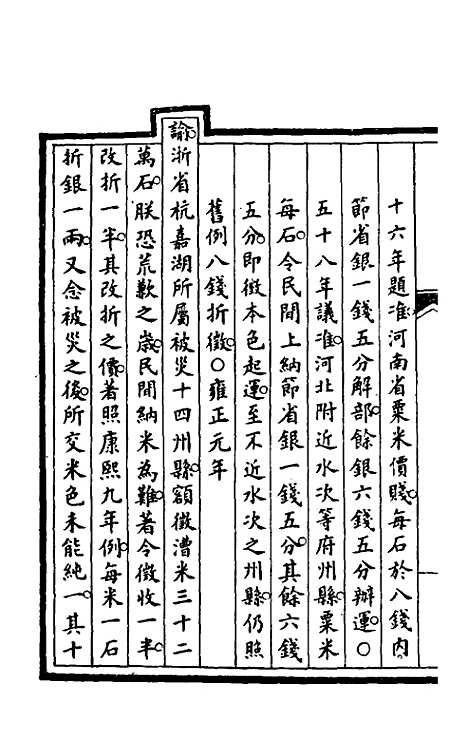 十六年題准河南省粟米價賤每石於八錢内
節省銀一錢五分解部餘銀六錢五分辦運〇
五十八年議准河北附近水次等府州縣粟米
每石令民間上納節省銀一錢五分其餘六錢
五分即徵本色起運至不近水次之州縣仍照
舊例八錢折徵〇雍正元年
諭浙省杭嘉湖所屬被災十四州縣額徵漕米三十二
萬石朕恐荒歉之歲民間納米為難著令徵收一半
改折一半其改折之價著照康熙九年例每米一石
折銀一兩又念被災之後所交米色未能純一其十